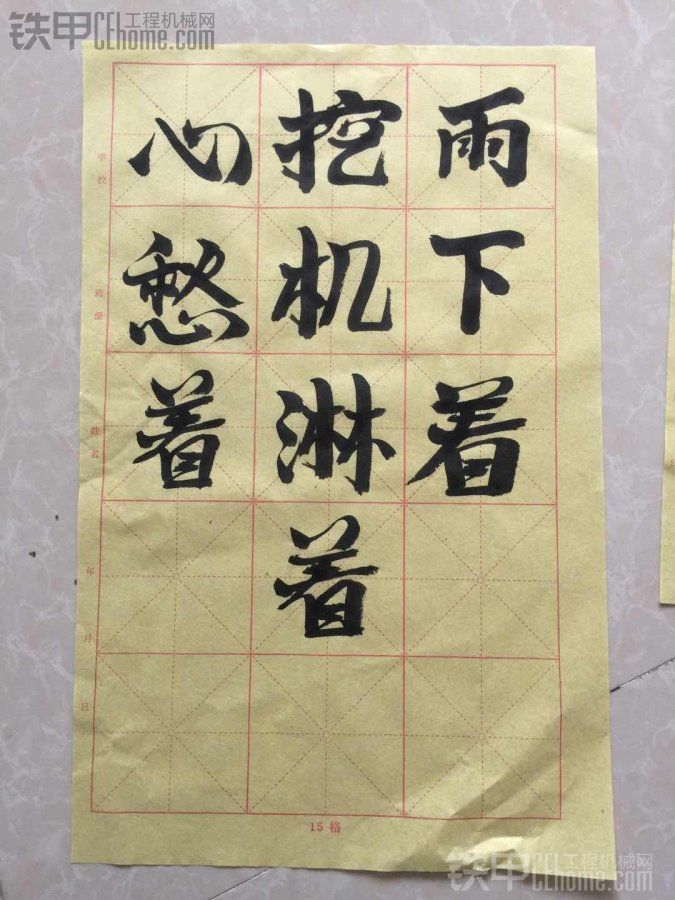 铁甲 工程机械网
CEhome.com
雨下着
挖机淋着
心愁着
学校
班级
姓名
年 月 日
15格
铁甲 工程机械网
CEhome.com